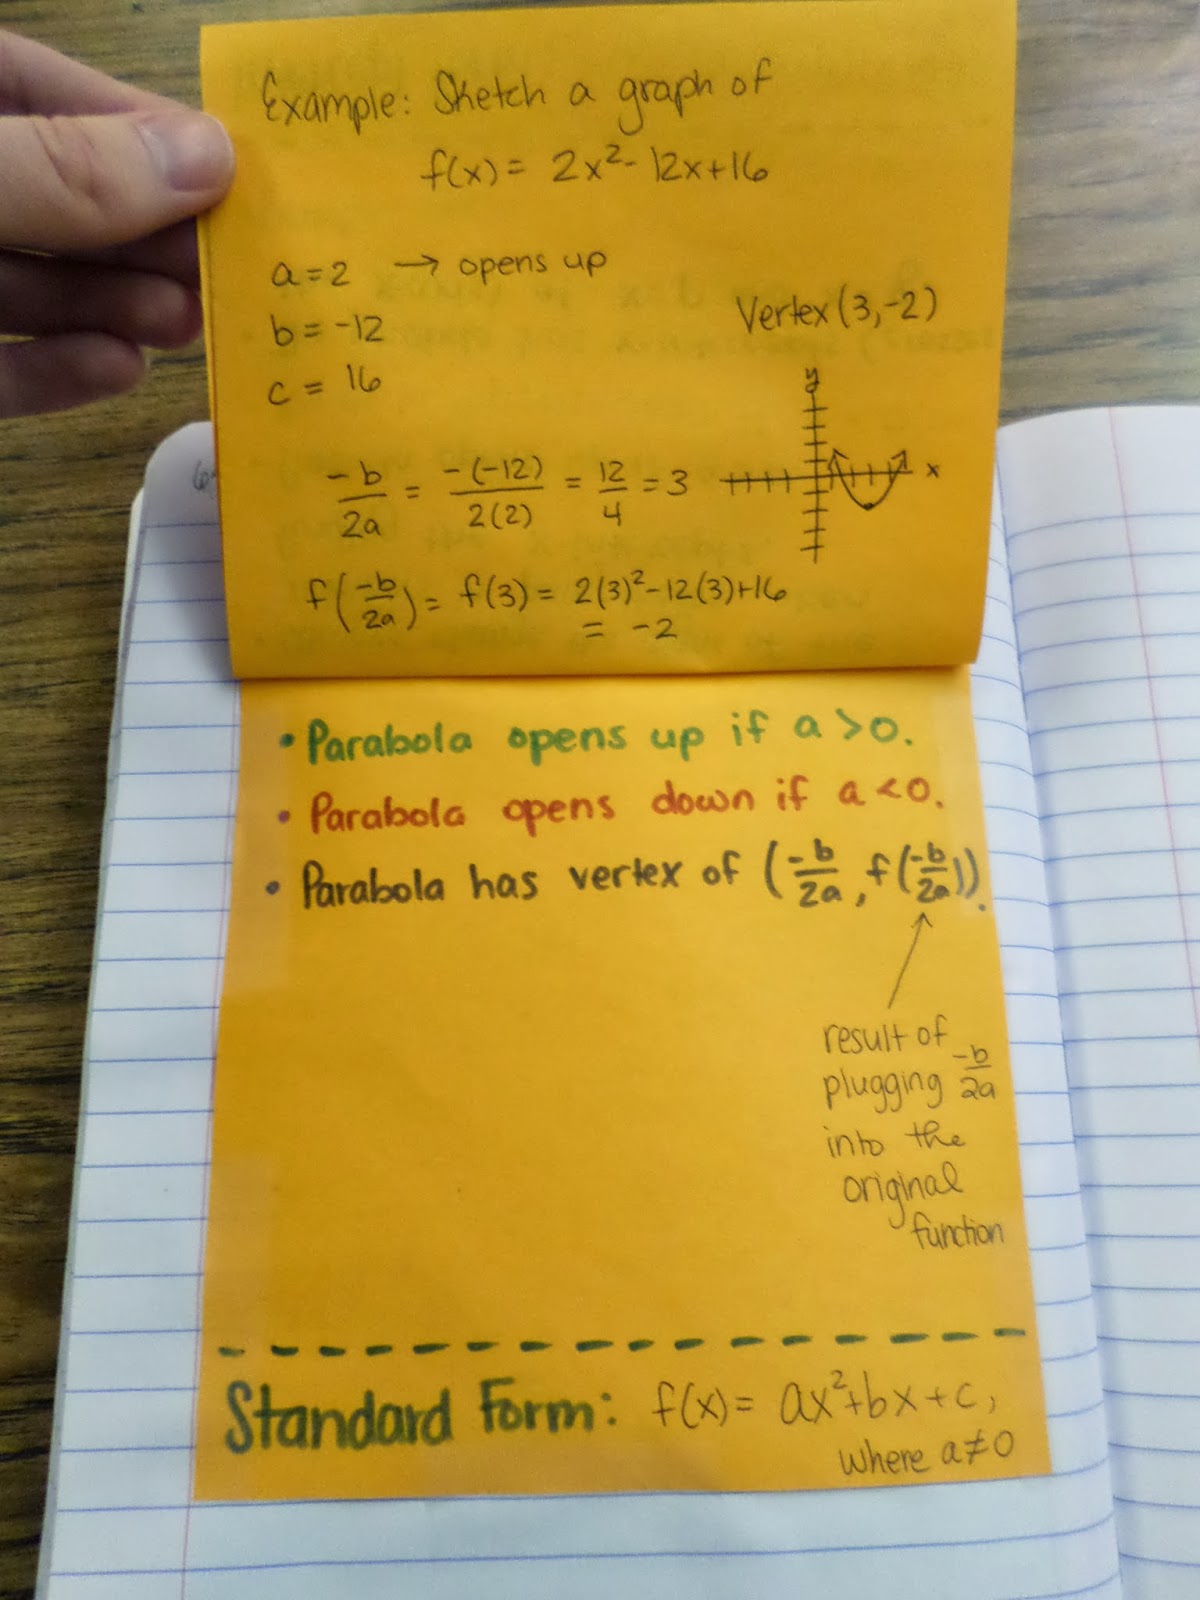 Example: Sketch a graph of
f(x) = 2x²- 12x+16
a=2 → opens up
b = -12
c = 16
Vertex (3,-2)
y
x
-b/2a = -(-12)/2(2) = 12/4 = 3
f(-b/2a) = f(3) = 2(3)²-12(3)+16
= -2
• Parabola opens up if a >0.
• Parabola opens down if a <0.
• Parabola has vertex of (-b/2a, f(-b/2a)).
result of
plugging -b/2a
into the
original
function
Standard Form: f(x) = ax²+bx+c,
where a≠0